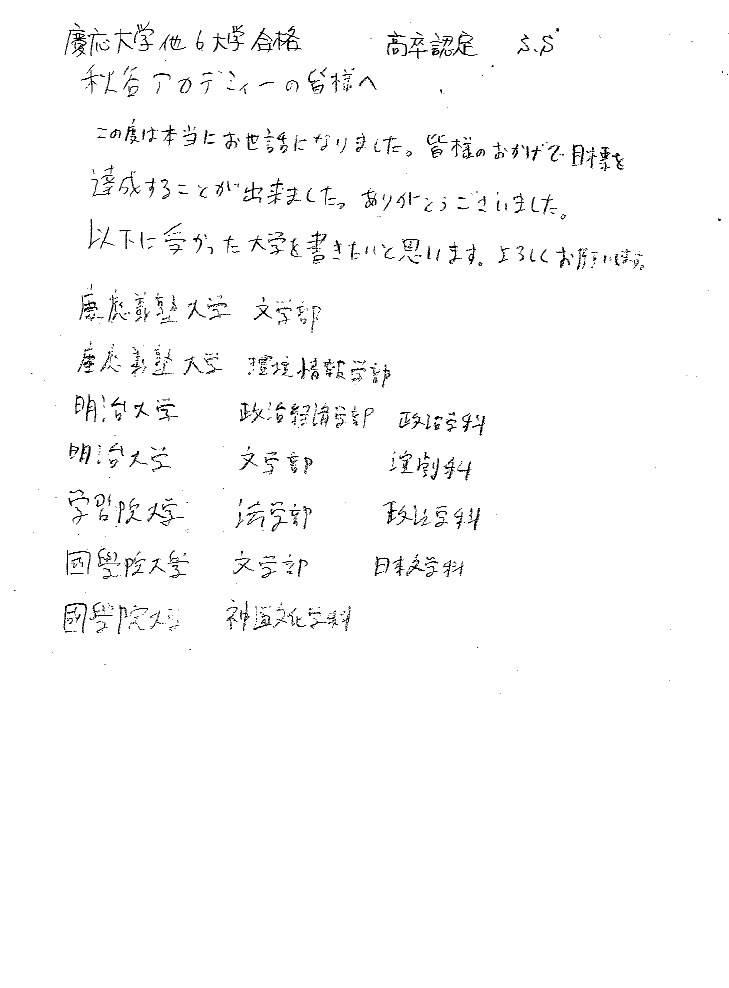 慶応大学他6大学合格 高卒認定 S.S
秋谷アカデミィーの皆様へ
この度は本当にお世話になりました。皆様のおかげで目標を
達成することが出来ました。ありがとうございました。
以下に受かった大学を書きたいと思います。よろしくお願いします。
慶應義塾大学 文学部
慶應義塾大学 環境情報学部
明治大学 政治経済学部 政治学科
明治大学 文学部 演劇科
学習院大学 法学部 政治学科
國學院大学 文学部 日本文学科
國學院大学 神道文化学科